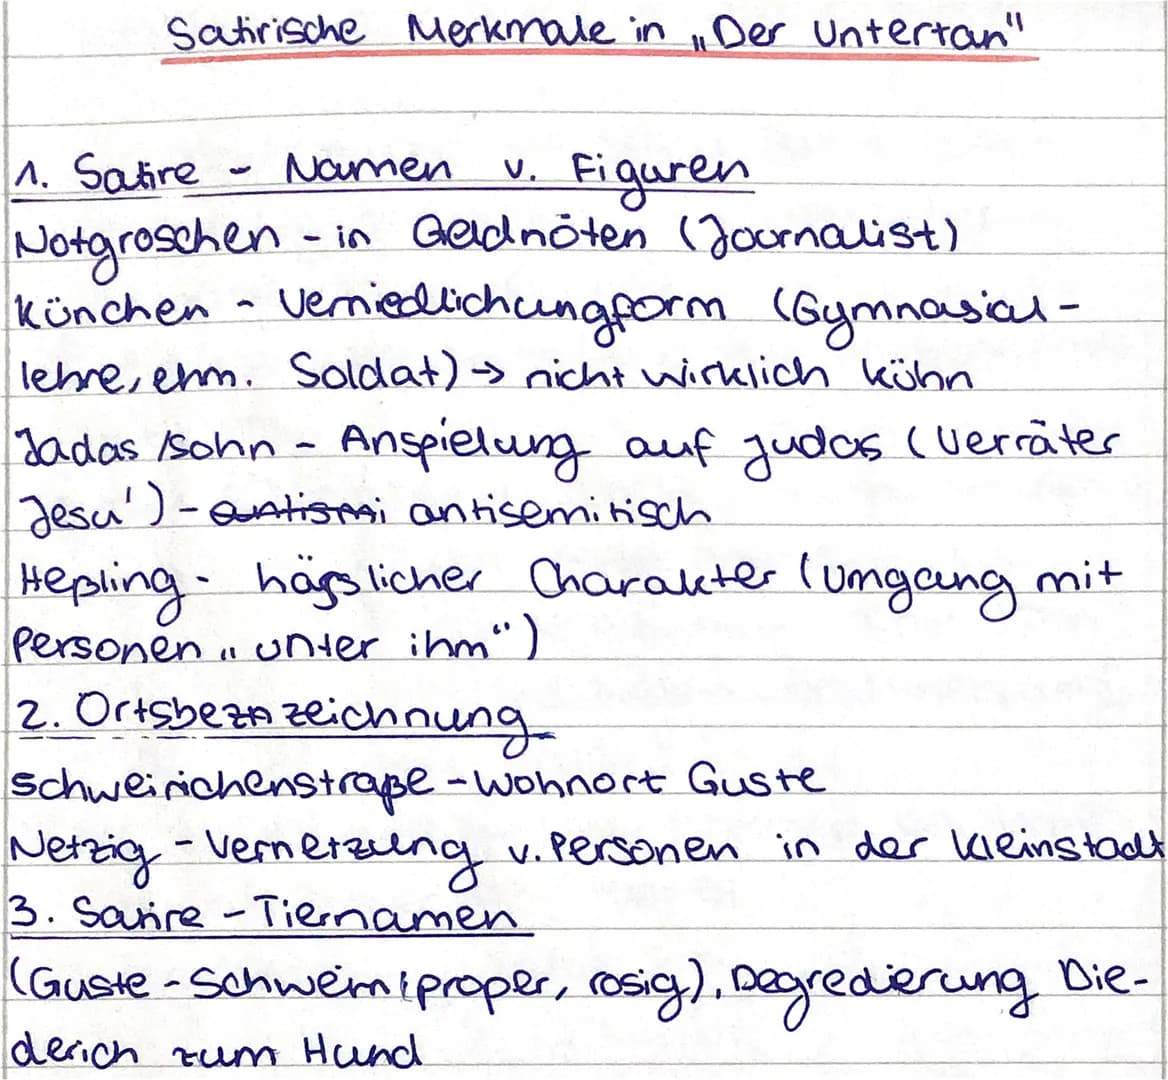 Satirische Merkmale in „Der Untertan"
1. Satire - Namen v. Figuren
Notgroschen - in Geldnöten (Journalist)
Künchen - Verniedlichungform (Gymnasial-
lehre, ehm. Soldat) → nicht wirklich kühn
Jadas /sohn - Anspielung auf Judas (Verräter
Jesu') - antismi antisemitisch
Heßling - häßlicher Charakter (Umgang mit
Personen „unter ihm")
2. Ortsbezn zeichnung
Schweinichenstraße - Wohnort Guste
Netzig - Vernetzung v. Personen in der Kleinstadt
3. Satire - Tiernamen
(Guste - Schwein (proper, rosig), Degredierung Die-
derich zum Hund